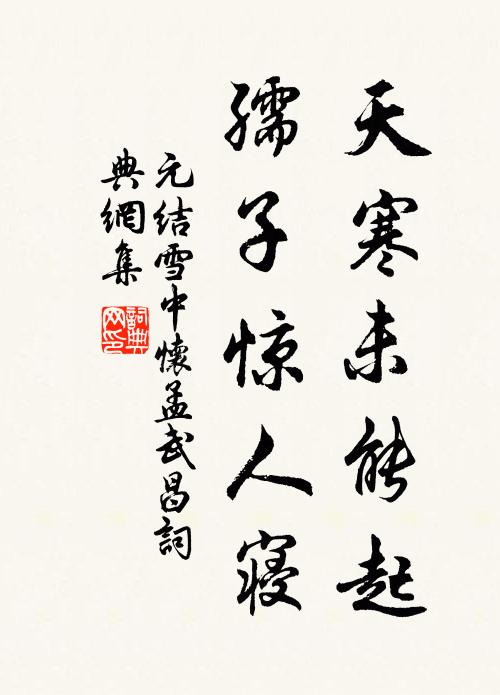 天寒未能起
孺子惊人寝
元结雪中懷孟武昌詞
典網集
詞典网印